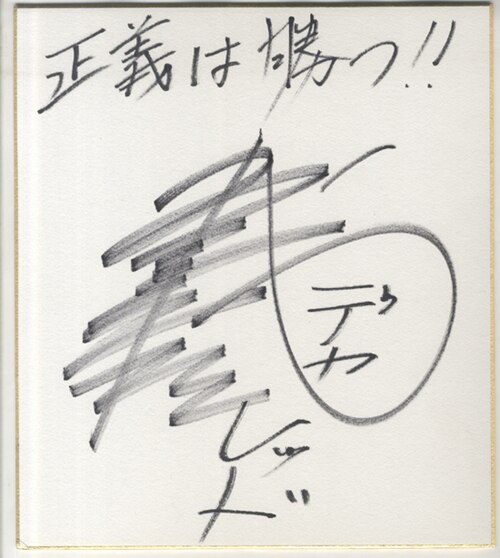 正義は勝つ!!
デカ
レッド